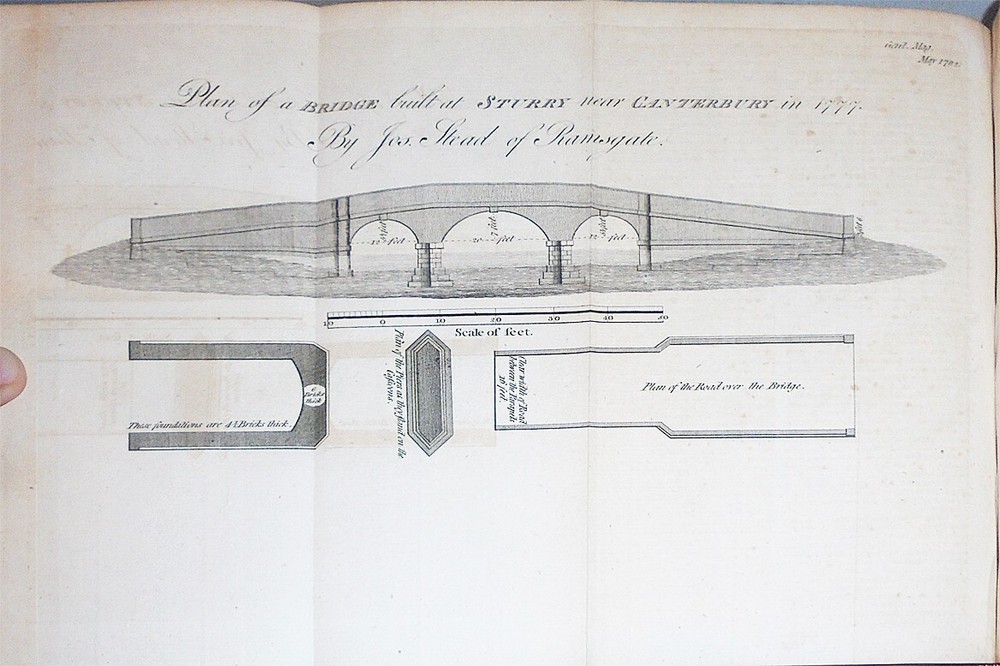 Gent. Mag.
May 1782.
Plan of a BRIDGE built at STURRY near CANTERBURY in 1777.
By Jos. Stead of Ramsgate.
12 feet
20 feet
7 feet
12 feet
10 0 10 20 30 40 50
Scale of feet.
6 Bricks thick
These foundations are 4½ Bricks thick.
Plan of the Piers as they stand on the
Caissons.
Clear width of Road
between the Parapets
16 feet
Plan of the Road over the Bridge.